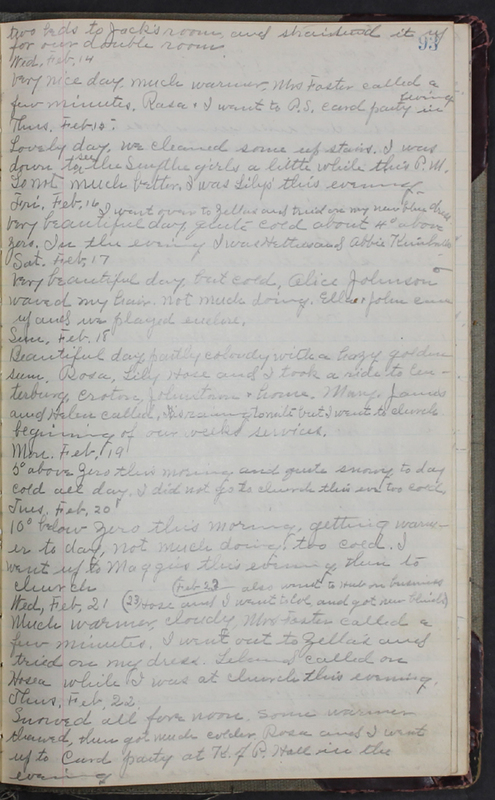 two beds to Jack's room and straightened it up
93
for our double room.
Wed. Feb. 14
Very nice day much warmer. Mrs Foster called a
few minutes. Rosa & I went to P.S. card party in
evening
Thurs. Feb. 15.
Lovely day, we cleaned some up stairs. I was
down to see the Smythe girls a little while this P.M.
not much better. I was Lilys this evening.
Fri. Feb. 16 I went over to Zellas and tried on my new blue dress
Very beautiful day quite cold about 4° above
zero. In the evening I was and Abbie
Sat. Feb. 17
Very beautiful day but cold, Alice Johnson
waved my hair. Not much doing. Ella & John came
up and we played euchre.
Sun. Feb. 18
Beautiful day partly cloudy with a hazy golden
sun. Rosa, Lily Hose and I took a ride to Cen-
terburg, Croton, Johnstown & home. Mary James
and Helen called. to nite but I went to church
beginning of our weeks services.
Mon. Feb. 19
5° above zero this morning and quite snowy to day
cold all day. I did not go to church this eve too cold
Tues. Feb. 20
10° below zero this morning, getting warm-
er to day, not much doing, too cold. I
went up to Maggies this evening then to
church. (Feb 23 also went to on business
Wed. Feb. 21 (23 Hosea and I went to and got new blinds)
Much warmer, cloudy, Mrs Foster called a
few minutes. I went out to Zella's and
tried on my dress. called on
Hosea while I was at church this evening.
Thurs. Feb. 22.
Snowed all fore noon, some warmer
thawed, then got much colder. Rosa and I went
up to Card party at K. of P. Hall in the
evening